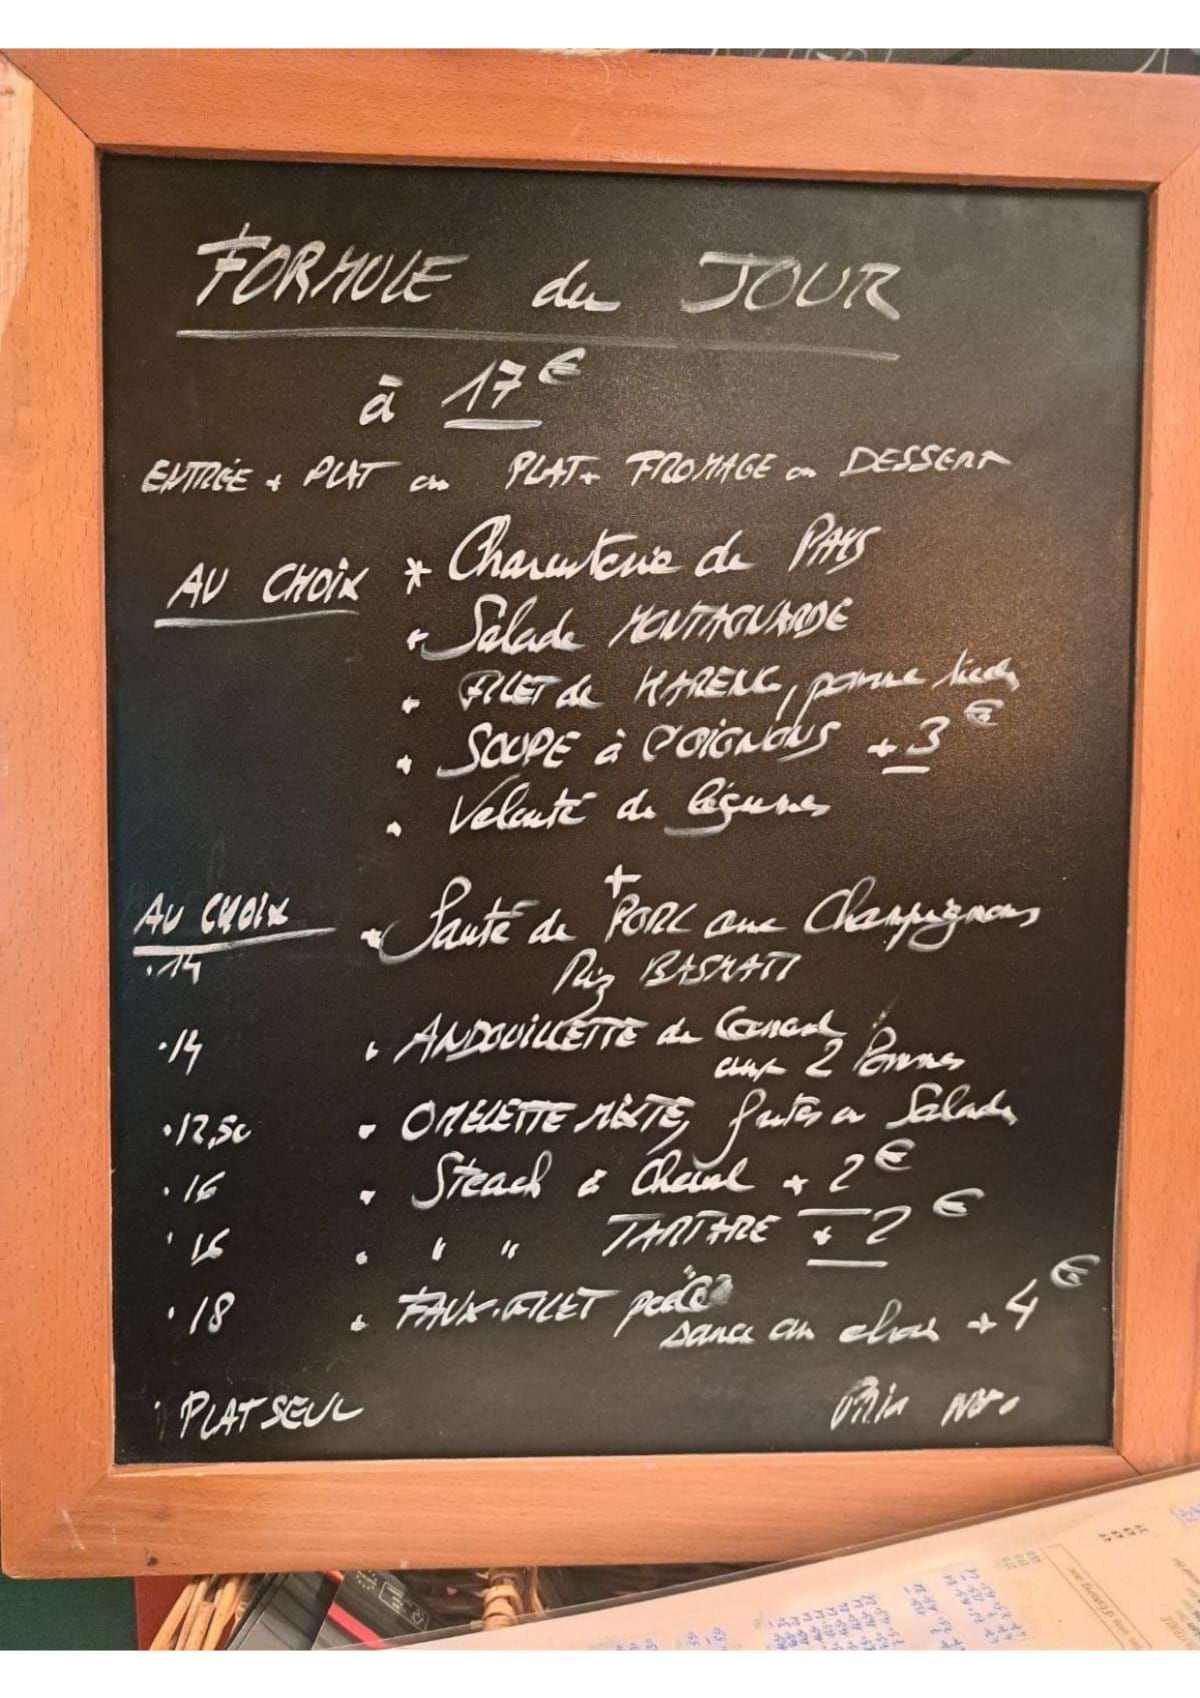 FORMULE du JOUR
à 17€
ENTRÉE + PLAT ou PLAT + FROMAGE ou DESSERT
AU CHOIX * Charcuterie de PAYS
* Salade MONTAGNARDE
* FILET de HARENG, pomme tiède
* SOUPE à l'OIGNONS + 3€
* Velouté de légumes
+
AU CHOIX * Sauté de PORC aux Champignons
.14 Riz BASMATI
.14 * ANDOUILLETTE de Canard
aux 2 Pommes
.12,50 * OMELETTE MIXTE, frites ou Salade
.16 * Steack à Cheval + 2€
.16 * " " TARTARE + 2€
.18 * FAUX-FILET
sauce au choix + 4€
PLAT SEUL Prix